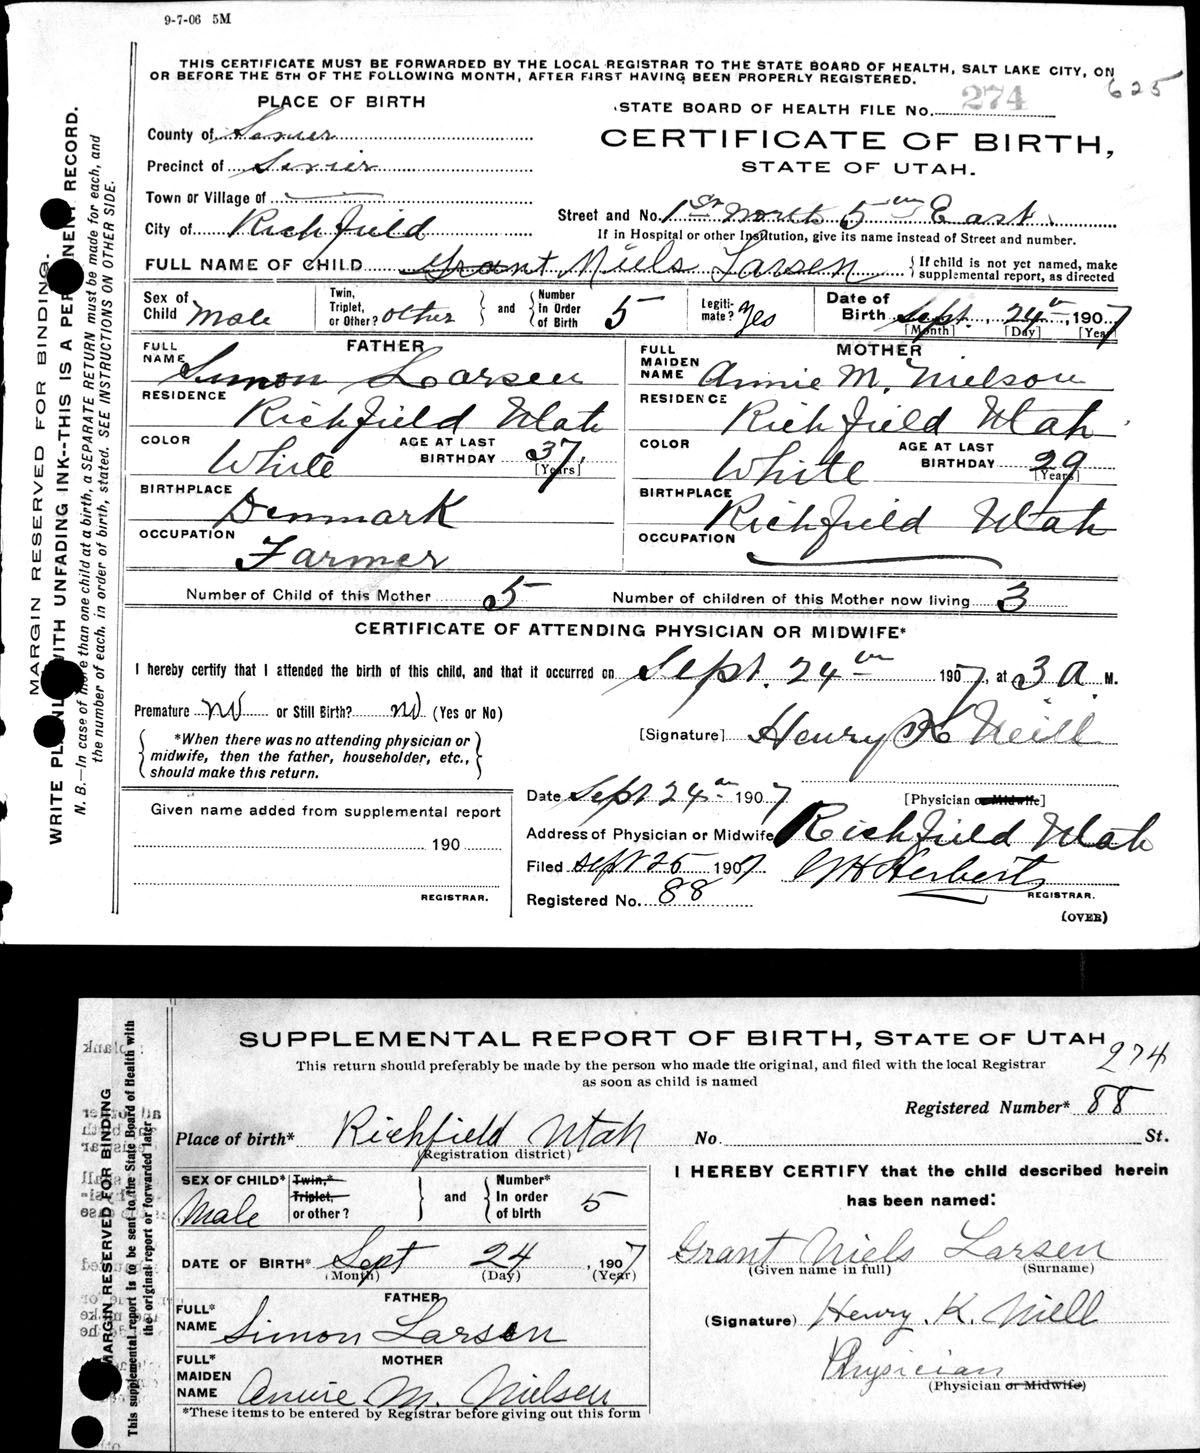 9-7-06 5M
THIS CERTIFICATE MUST BE FORWARDED BY THE LOCAL REGISTRAR TO THE STATE BOARD OF HEALTH, SALT LAKE CITY, ON
OR BEFORE THE 5TH OF THE FOLLOWING MONTH, AFTER FIRST HAVING BEEN PROPERLY REGISTERED.
625
PLACE OF BIRTH
STATE BOARD OF HEALTH FILE No. 274
County of Sevier
CERTIFICATE OF BIRTH,
Precinct of Sevier
STATE OF UTAH.
Town or Village of
Street and No. 1st North 5th East.
City of Richfield
If in Hospital or other Institution, give its name instead of Street and number.
FULL NAME OF CHILD Grant Niels Larsen
{ If child is not yet named, make
supplemental report, as directed
Sex of Child Male
Twin, Triplet, or Other? other } and { Number In Order of Birth 5
Legitimate? Yes
Date of Birth Sept. 24th, 1907
[Month] [Day] [Year]
FATHER
FULL NAME Simon Larsen
RESIDENCE Richfield Utah
COLOR White AGE AT LAST BIRTHDAY 37.
[Years]
BIRTHPLACE Denmark
OCCUPATION Farmer
MOTHER
FULL MAIDEN NAME Annie M. Nielson
RESIDENCE Richfield Utah
COLOR White AGE AT LAST BIRTHDAY 29
[Years]
BIRTHPLACE Richfield Utah
OCCUPATION
Number of Child of this Mother 5 Number of children of this Mother now living 3
CERTIFICATE OF ATTENDING PHYSICIAN OR MIDWIFE*
I hereby certify that I attended the birth of this child, and that it occurred on Sept. 24th 1907, at 3 A. M.
Premature no or Still Birth? no (Yes or No)
[Signature] Henry K Neill
{ *When there was no attending physician or
midwife, then the father, householder, etc.,
should make this return. }
[Physician or Midwife]
Date Sept 24th 1907
Given name added from supplemental report
190
REGISTRAR.
Address of Physician or Midwife Richfield Utah
Filed Sept 25 1907 Herbert
REGISTRAR.
Registered No. 88
(OVER)
MARGIN RESERVED FOR BINDING.
WRITE PLAINLY WITH UNFADING INK--THIS IS A PERMANENT RECORD.
N. B.—In case of more than one child at a birth, a SEPARATE RETURN must be made for each, and
the number of each, in order of birth, stated. SEE INSTRUCTIONS ON OTHER SIDE.
SUPPLEMENTAL REPORT OF BIRTH, STATE OF UTAH
This return should preferably be made by the person who made the original, and filed with the local Registrar
as soon as child is named
274
Registered Number* 88
Place of birth* Richfield Utah No. St.
(Registration district)
SEX OF CHILD* Male
Twin,* Triplet, or other? } and { Number* In order of birth 5
DATE OF BIRTH* Sept 24, 1907
(Month) (Day) (Year)
FATHER
FULL* NAME Simon Larsen
MOTHER
FULL* MAIDEN NAME Annie M. Nielsen
*These items to be entered by Registrar before giving out this form
I HEREBY CERTIFY that the child described herein
has been named:
Grant Niels Larsen
(Given name in full) (Surname)
(Signature) Henry K. Niell
Physician
(Physician or Midwife)
MARGIN RESERVED FOR BINDING
This supplemental report is to be sent to the State Board of Health with
the original report or forwarded later